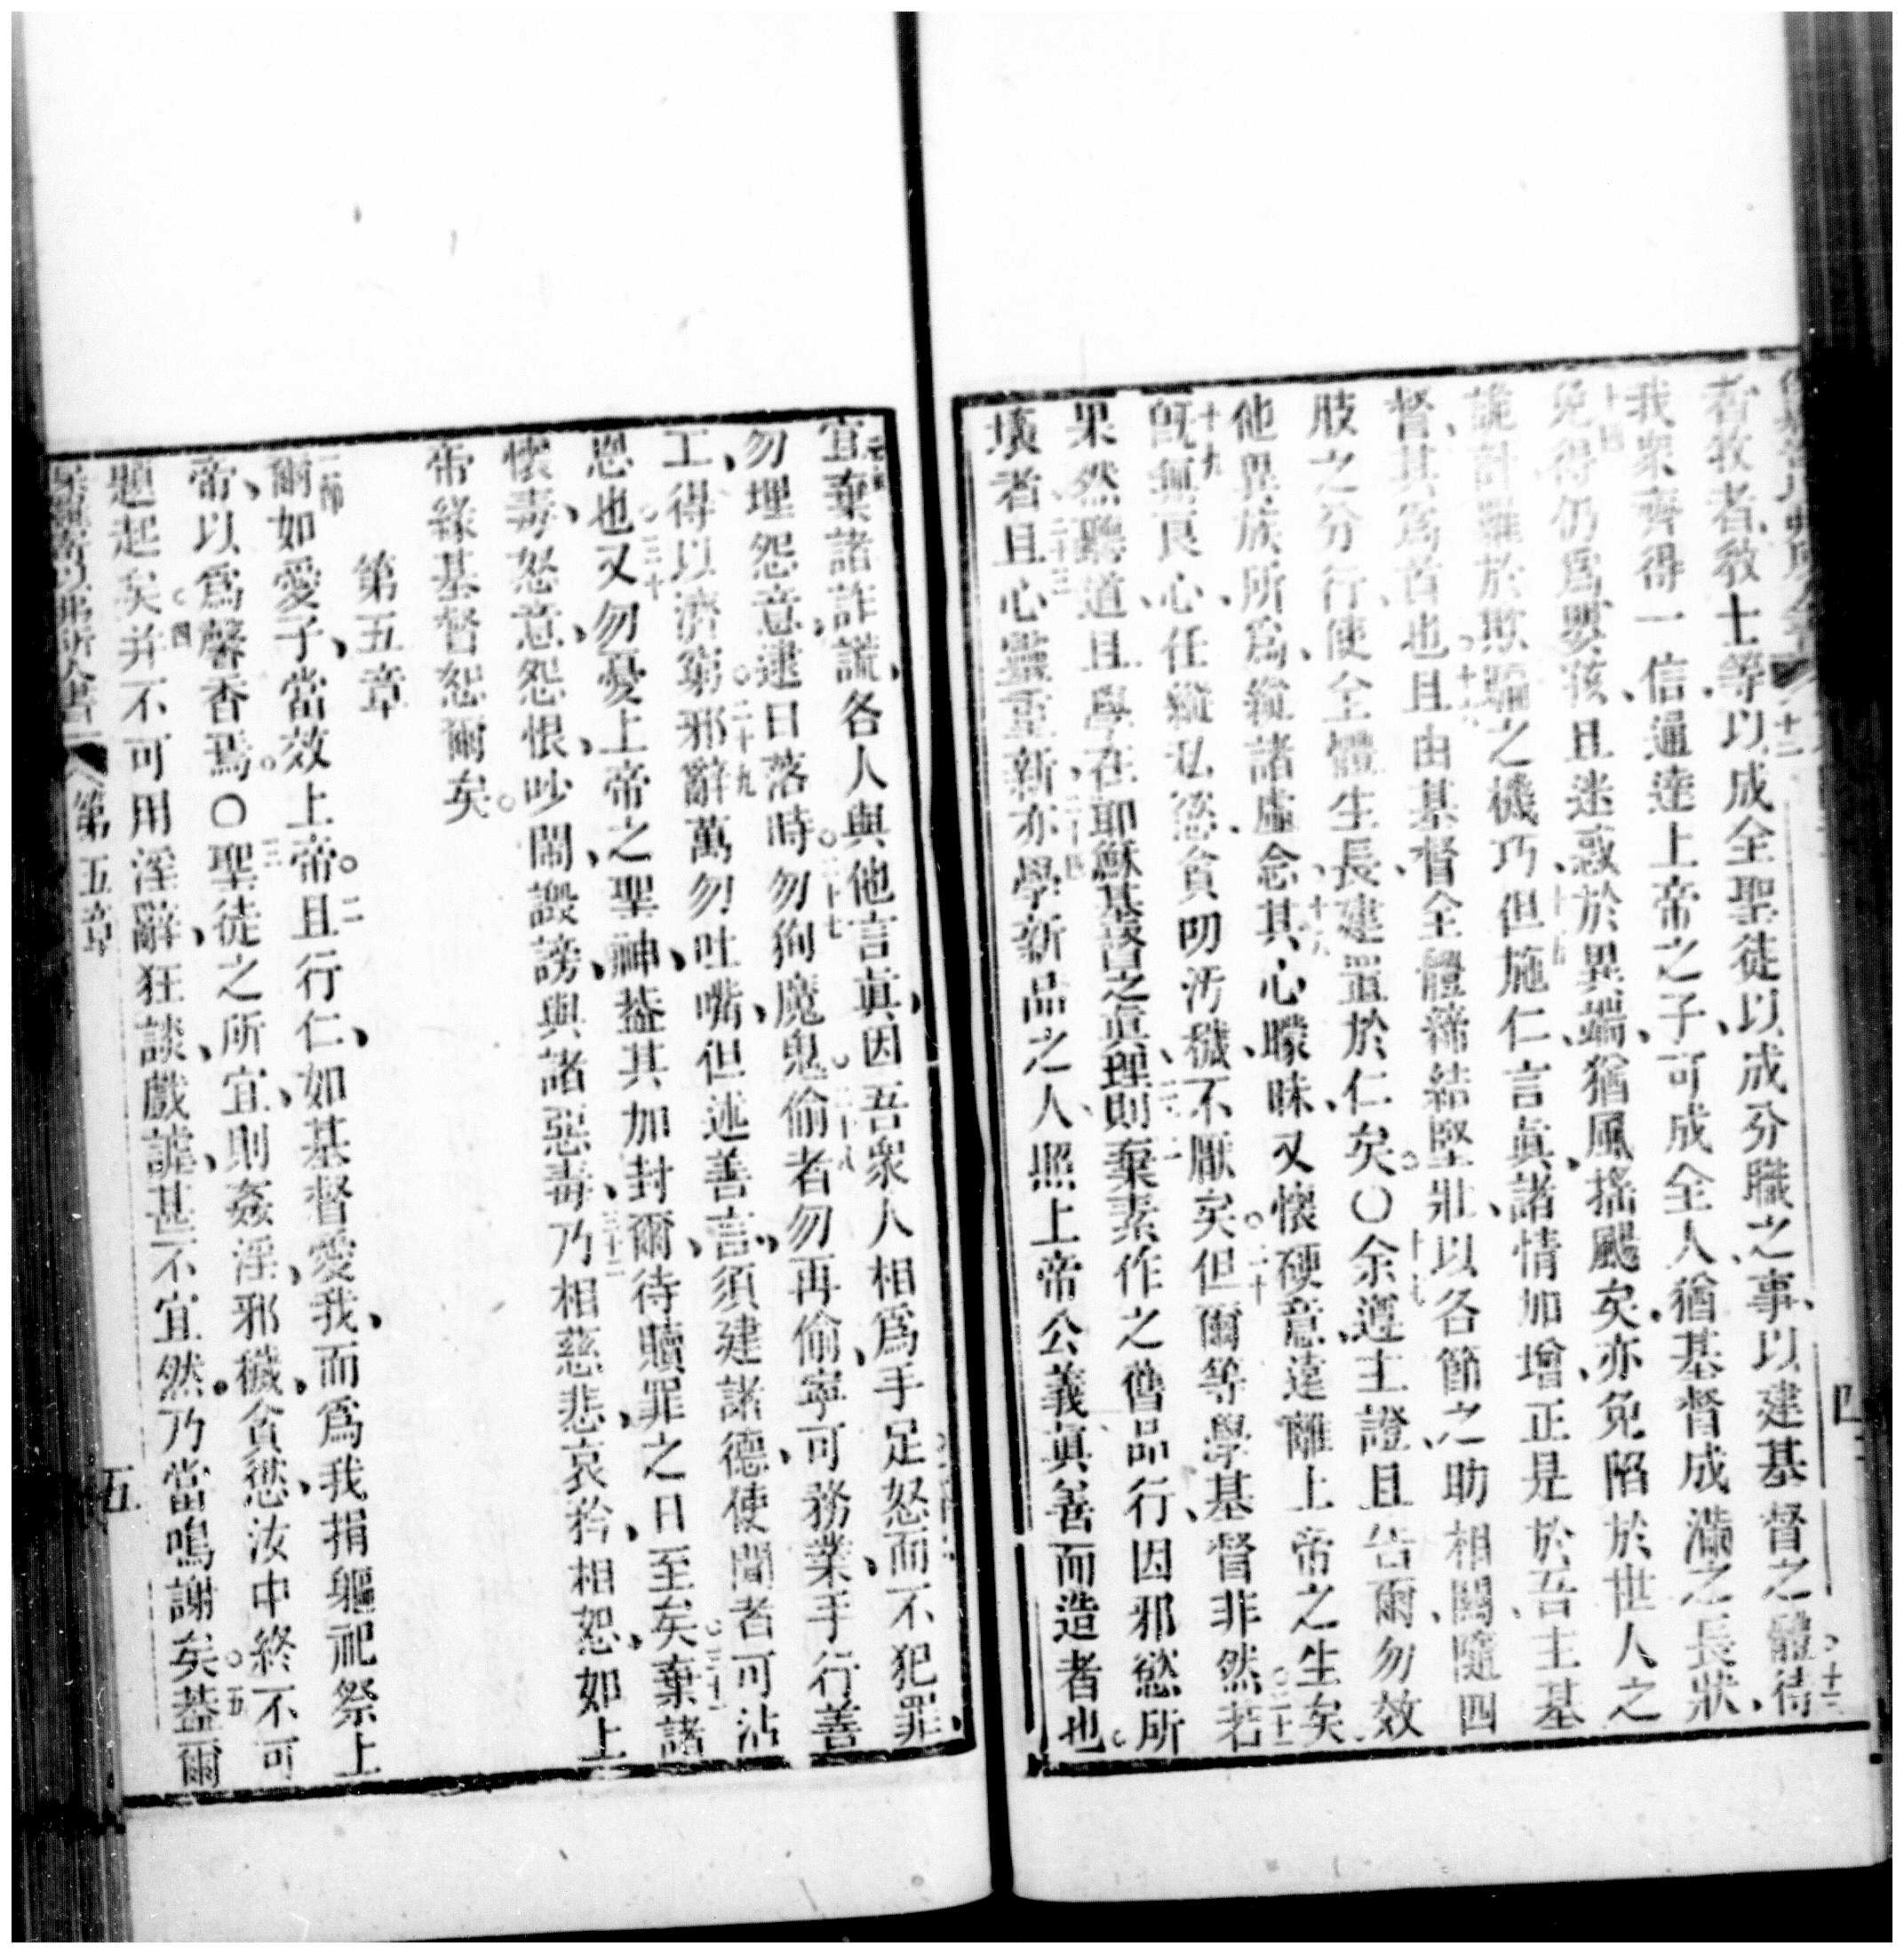 者牧者教士等以成全聖徒以成分職之事、以建基督之體、十三待
我衆齊得一信、通達上帝之子、可成全人、猶基督成滿之長狀、
十四免得仍爲嬰孩、且迷惑於異端、猶風搖颺矣、亦免陷於世人之
詭計雖於欺騙之機巧、但施仁言眞、諸情加增、正是於吾主基
督、其爲首也、十六且由基督、全體締結堅壯、以各節之助相關、隨四
肢之分行、使全體生長、建置於仁矣。〇十七余遵主證且告爾、勿效
他異族所爲、縱諸虛念、十八其心曚昧、又懷硬意、遠離上帝之生矣、
十九旣無良心、任縱私慾、貪叨汚穢、不厭矣。二十但爾等學基督非然。二十一若
果然聽道、且學在耶穌基督之眞理、二十二則棄素作之舊品行、因邪慾所
壞者、二十三且心靈重新、二十四亦學新品之人、照上帝公義眞善而造者也。
宜棄諸詐謊、各人與他言眞、因吾衆人相爲手足。怒而不犯罪、
勿埋怨意、逮日落時。二十七勿狥魔鬼。二十八偷者勿再偷、寧可務業、手行善
工、得以濟窮。二十九邪辭萬勿吐嘴、但述善言、須建諸德、使聞者可沾
恩也。三十又勿憂上帝之聖神、葢其加封爾、待贖罪之日至矣。三十一棄諸
懷毒、怒意、怨恨、吵鬧、譭謗、與諸惡毒、三十二乃相慈悲、哀矜、相恕、如上
帝緣基督恕爾矣。
第五章
一節爾如愛子、當效上帝。二且行仁、如基督愛我、而爲我捐軀祀祭上
帝、以爲馨香焉。〇三聖徒之所宜、則姦淫、邪穢、貪慾、汝中終不可
題起矣。四并不可用淫辭、狂談、戲謔、甚不宜然、乃當鳴謝矣。五葢爾
第五章
五